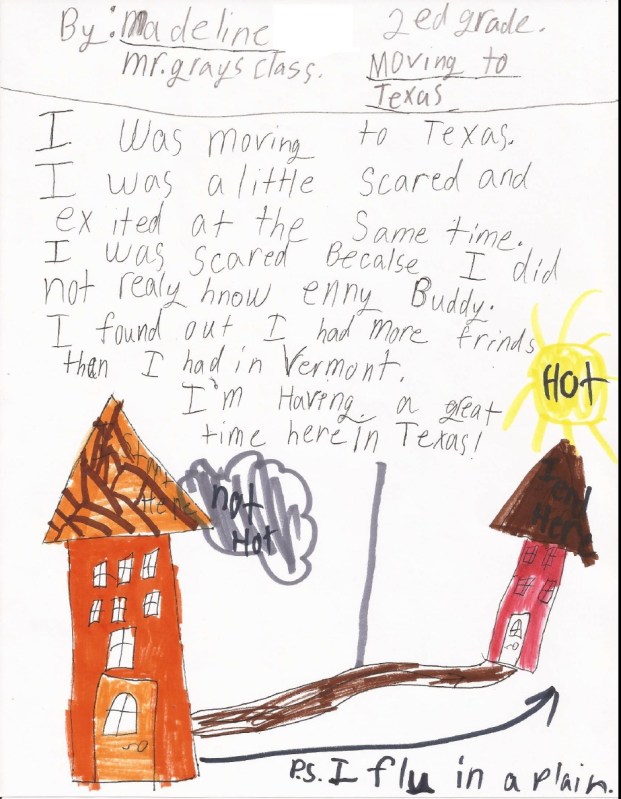 By: Madeline 2ed grade.
mr. grays class. Moving to
Texas
I was moving to Texas.
I was a little scared and
exited at the same time.
I was scared Becalse I did
not realy know enny Buddy.
I found out I had more frinds
than I had in Vermont.
I'm Having a great
time here in Texas!
HOT
I Start
Here
not
Hot
I end
Here
P.S. I flu in a plain.